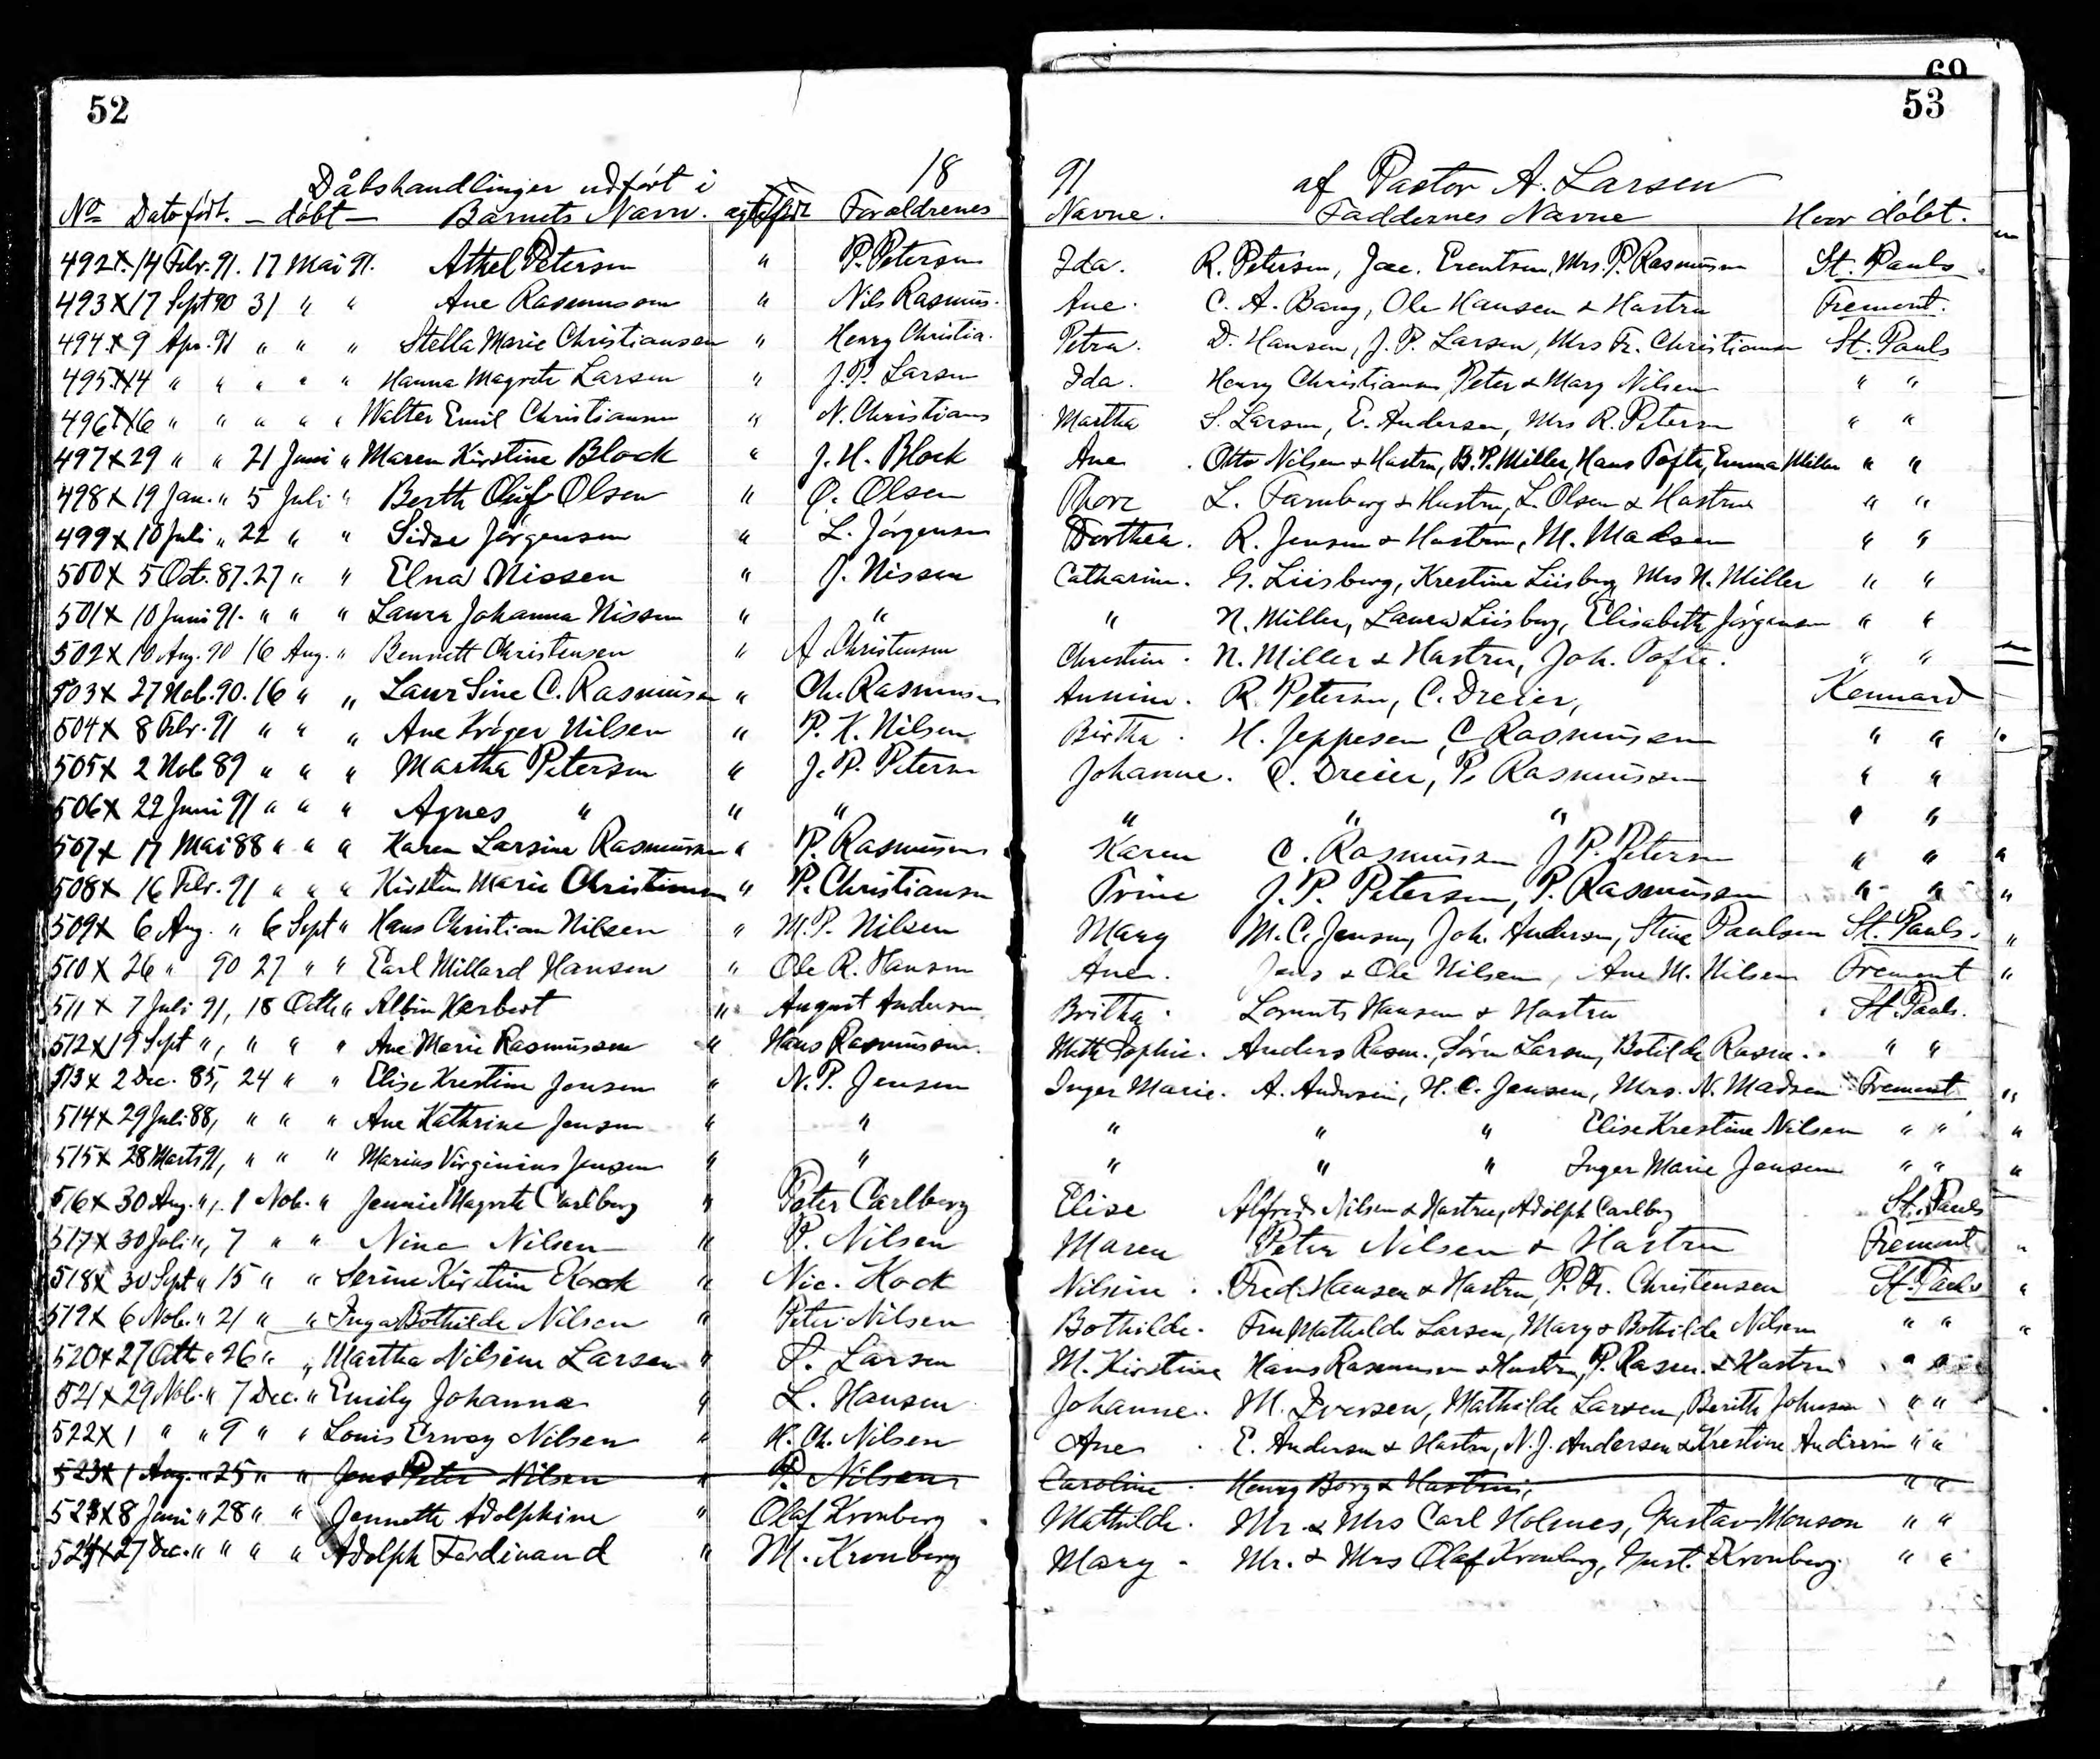 52
60
53
Dåbshandlinger udført i 18 91 af Pastor A. Larsen
No Dato født. — døbt — Barnets Navn. Forældrenes Navne. Faddernes Navne Hvor døbt.
492X 14 Febr. 91. 17 Mai 91. Athel Petersen " P. Petersen Ida. R. Petersen, Jac. Erentsen, Mrs. P. Rasmussen St. Pauls
493X 17 Sept 90 31 " " Ane Rasmussen " Nils Rasmus. Ane. C. A. Bang, Ole Hansen & Hustru Fremont.
494X 9 Apr. 91 " " " Stella Marie Christiansen " Henry Christia. Petra. D. Hansen, J. P. Larsen, Mrs Fr. Christiansen St. Pauls
495X 14 " " " " " Hanna Magrete Larsen " J. P. Larsen Ida. Henry Christiansen, Peter & Mary Nilsen " "
496X 16 " " " " " Walter Emil Christiansen " N. Christians Martha S. Larsen, E. Andersen, Mrs R. Petersen " "
497X 29 " " 21 Juni " Maren Kirstine Block " J. H. Block Ane. Otto Nilsen & Hustru, B. P. Miller, Hans Tofte, Emma Miller " "
498X 19 Jan. " 5 Juli " Berth Oluf Olsen " O. Olsen Thora L. Farnberg & Hustru, L. Olsen & Hustru " "
499X 10 Juli " 22 " " Sidse Jørgensen " L. Jørgensen Dorthea. R. Jensen & Hustru, M. Madsen " "
500X 5 Oct. 87. 27 " " Elna Nissen " J. Nissen Catharine. G. Liisberg, Krestine Liisberg Mrs N. Miller " "
501X 10 Juni 91. " " " Laura Johanna Nissen " " " N. Miller, Laura Liisberg, Elisabeth Jørgensen " "
502X 10 Aug. 90 16 Aug. " Bennett Christensen " A Christensen Christine. N. Miller & Hustru, Joh. Tofte. " "
503X 27 Nob. 90. 16 " " Laur Sine C. Rasmussen " Ch. Rasmussen Annine. R. Petersen, C. Dreier, Kennard
504X 8 Febr. 91 " " " Ane Krøger Nilsen " P. K. Nilsen Birtha. H. Jeppesen, C Rasmussen " "
505X 2 Nob 89 " " " Martha Petersen " J. P. Petersen Johanne. C. Dreier, P. Rasmussen " "
506X 22 Juni 91 " " " Agnes " " " " " " " "
507X 17 Mai 88 " " " Karen Larsine Rasmussen " P. Rasmussen Karen C. Rasmussen J. P. Petersen " "
508X 16 Febr. 91 " " " Kirsten Marie Christiansen " P. Christiansen Trine J. P. Petersen, P. Rasmussen " "
509X 6 Aug. " 6 Sept " Hans Christian Nilsen " M. P. Nilsen Mary M. C. Jensen, Joh. Andersen, Stine Paulsen St. Pauls.
510X 26 " 90 27 " " Earl Millard Hansen " Ole R. Hansen Ane. Jens & Ole Nilsen, Ane M. Nilsen Fremont
511X 7 Juli 91, 18 Octb " Albin Herbert " August Andersen Britha. Lorents Hansen & Hustru St. Pauls.
512X 19 Sept ", " " " Ane Marie Rasmussen " Hans Rasmussen. Meth Sophie. Anders Rasm., Søren Larsen, Botilde Rasm. " "
513X 2 Dec. 85, 24 " " Elise Krestine Jensen " N. P. Jensen Inger Marie. A. Andersen, H. C. Jensen, Mrs. N. Madsen Fremont
514X 29 Juli 88, " " " Ane Kathrine Jensen " " " " " Elise Krestine Nilsen " "
515X 28 Marts 91, " " " Marius Virginius Jensen " " " " " Inger Marie Jensen " "
516X 30 Aug. ", 1 Nob. " Jennie Magrete Carlberg " Peter Carlberg Elise Alfred Nilsen & Hustru, Adolph Carlberg St. Pauls
517X 30 Juli ", 7 " " Nina Nilsen " P. Nilsen Maren Peter Nilsen & Hustru Fremont
518X 30 Sept " 15 " " Serine Kirstine Kock " Nic. Kock Nilsine. Fred. Hansen & Hustru, P. Fr. Christensen St. Pauls
519X 6 Nob. " 21 " " Inga Bothilde Nilsen " Peter Nilsen Bothilde. Fru Mathilde Larsen, Mary & Bothilde Nilsen " "
520X 27 Octb " 26 " " Martha Nilsine Larsen " S. Larsen M. Kirstine Hans Rasmussen & Hustru, P. Rasm. & Hustru " "
521X 29 Nob. " 7 Dec. " Emily Johanna " L. Hansen Johanne. M. Iversen, Mathilde Larsen, Berith Johnson " "
522X 1 " " 9 " " Louis Erway Nilsen " H. Ch. Nilsen Ane. E. Andersen & Hustru, N. J. Andersen & Krestine Andersen " "
523X 1 Aug. " 25 " " Jens Peter Nilsen " P. Nilsen Caroline. Henry Borg & Hustru, " "
523X 8 Juni " 28 " " Jennette Adolphine " Olaf Kronberg. Mathilde. Mr. & Mrs Carl Holmes, Gustav Monson " "
524X 27 Dec. " " " " Adolph Ferdinand " M. Kronberg Mary. Mr. & Mrs Olaf Kronberg, Gust. Kronberg. " "